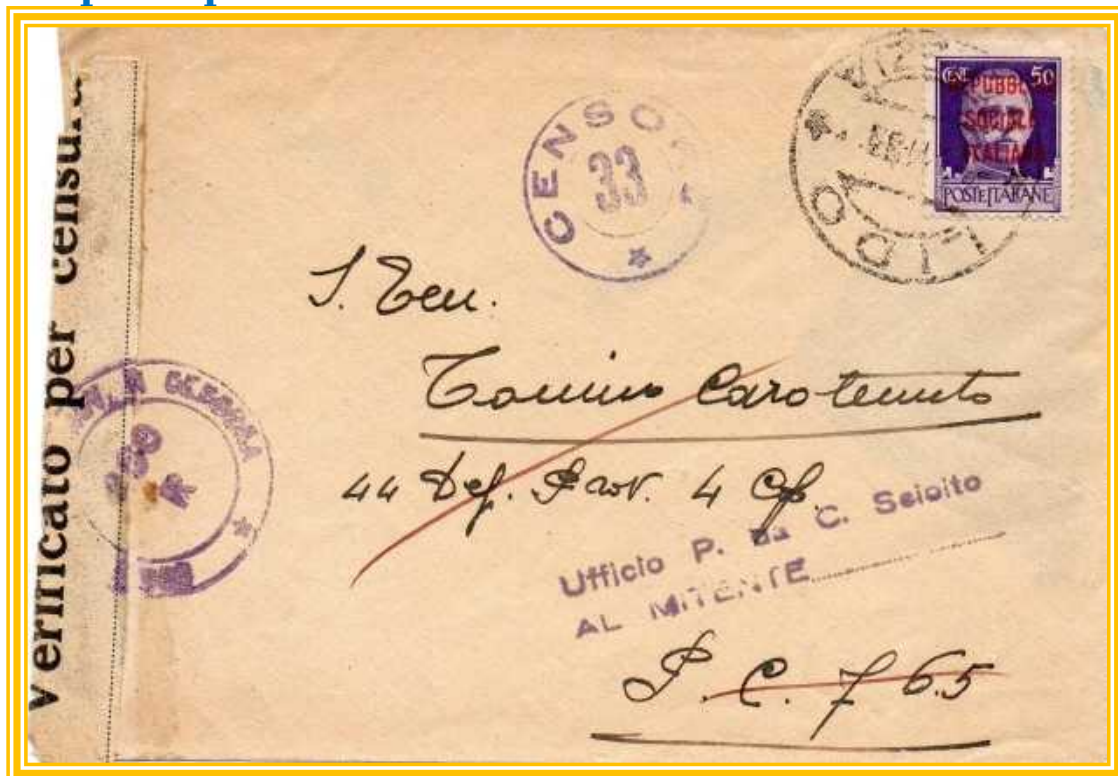 Verificato per censura
CENSO
33
LIDO
CENT 50
REPUBBLICA
SOCIALE
ITALIANA
POSTE ITALIANE
S. Ten.
Tonino Carotenuto
44 Def. Prov. 4 Cp.
Ufficio P. da C. Sciolto
AL MITENTE
P. C. 765